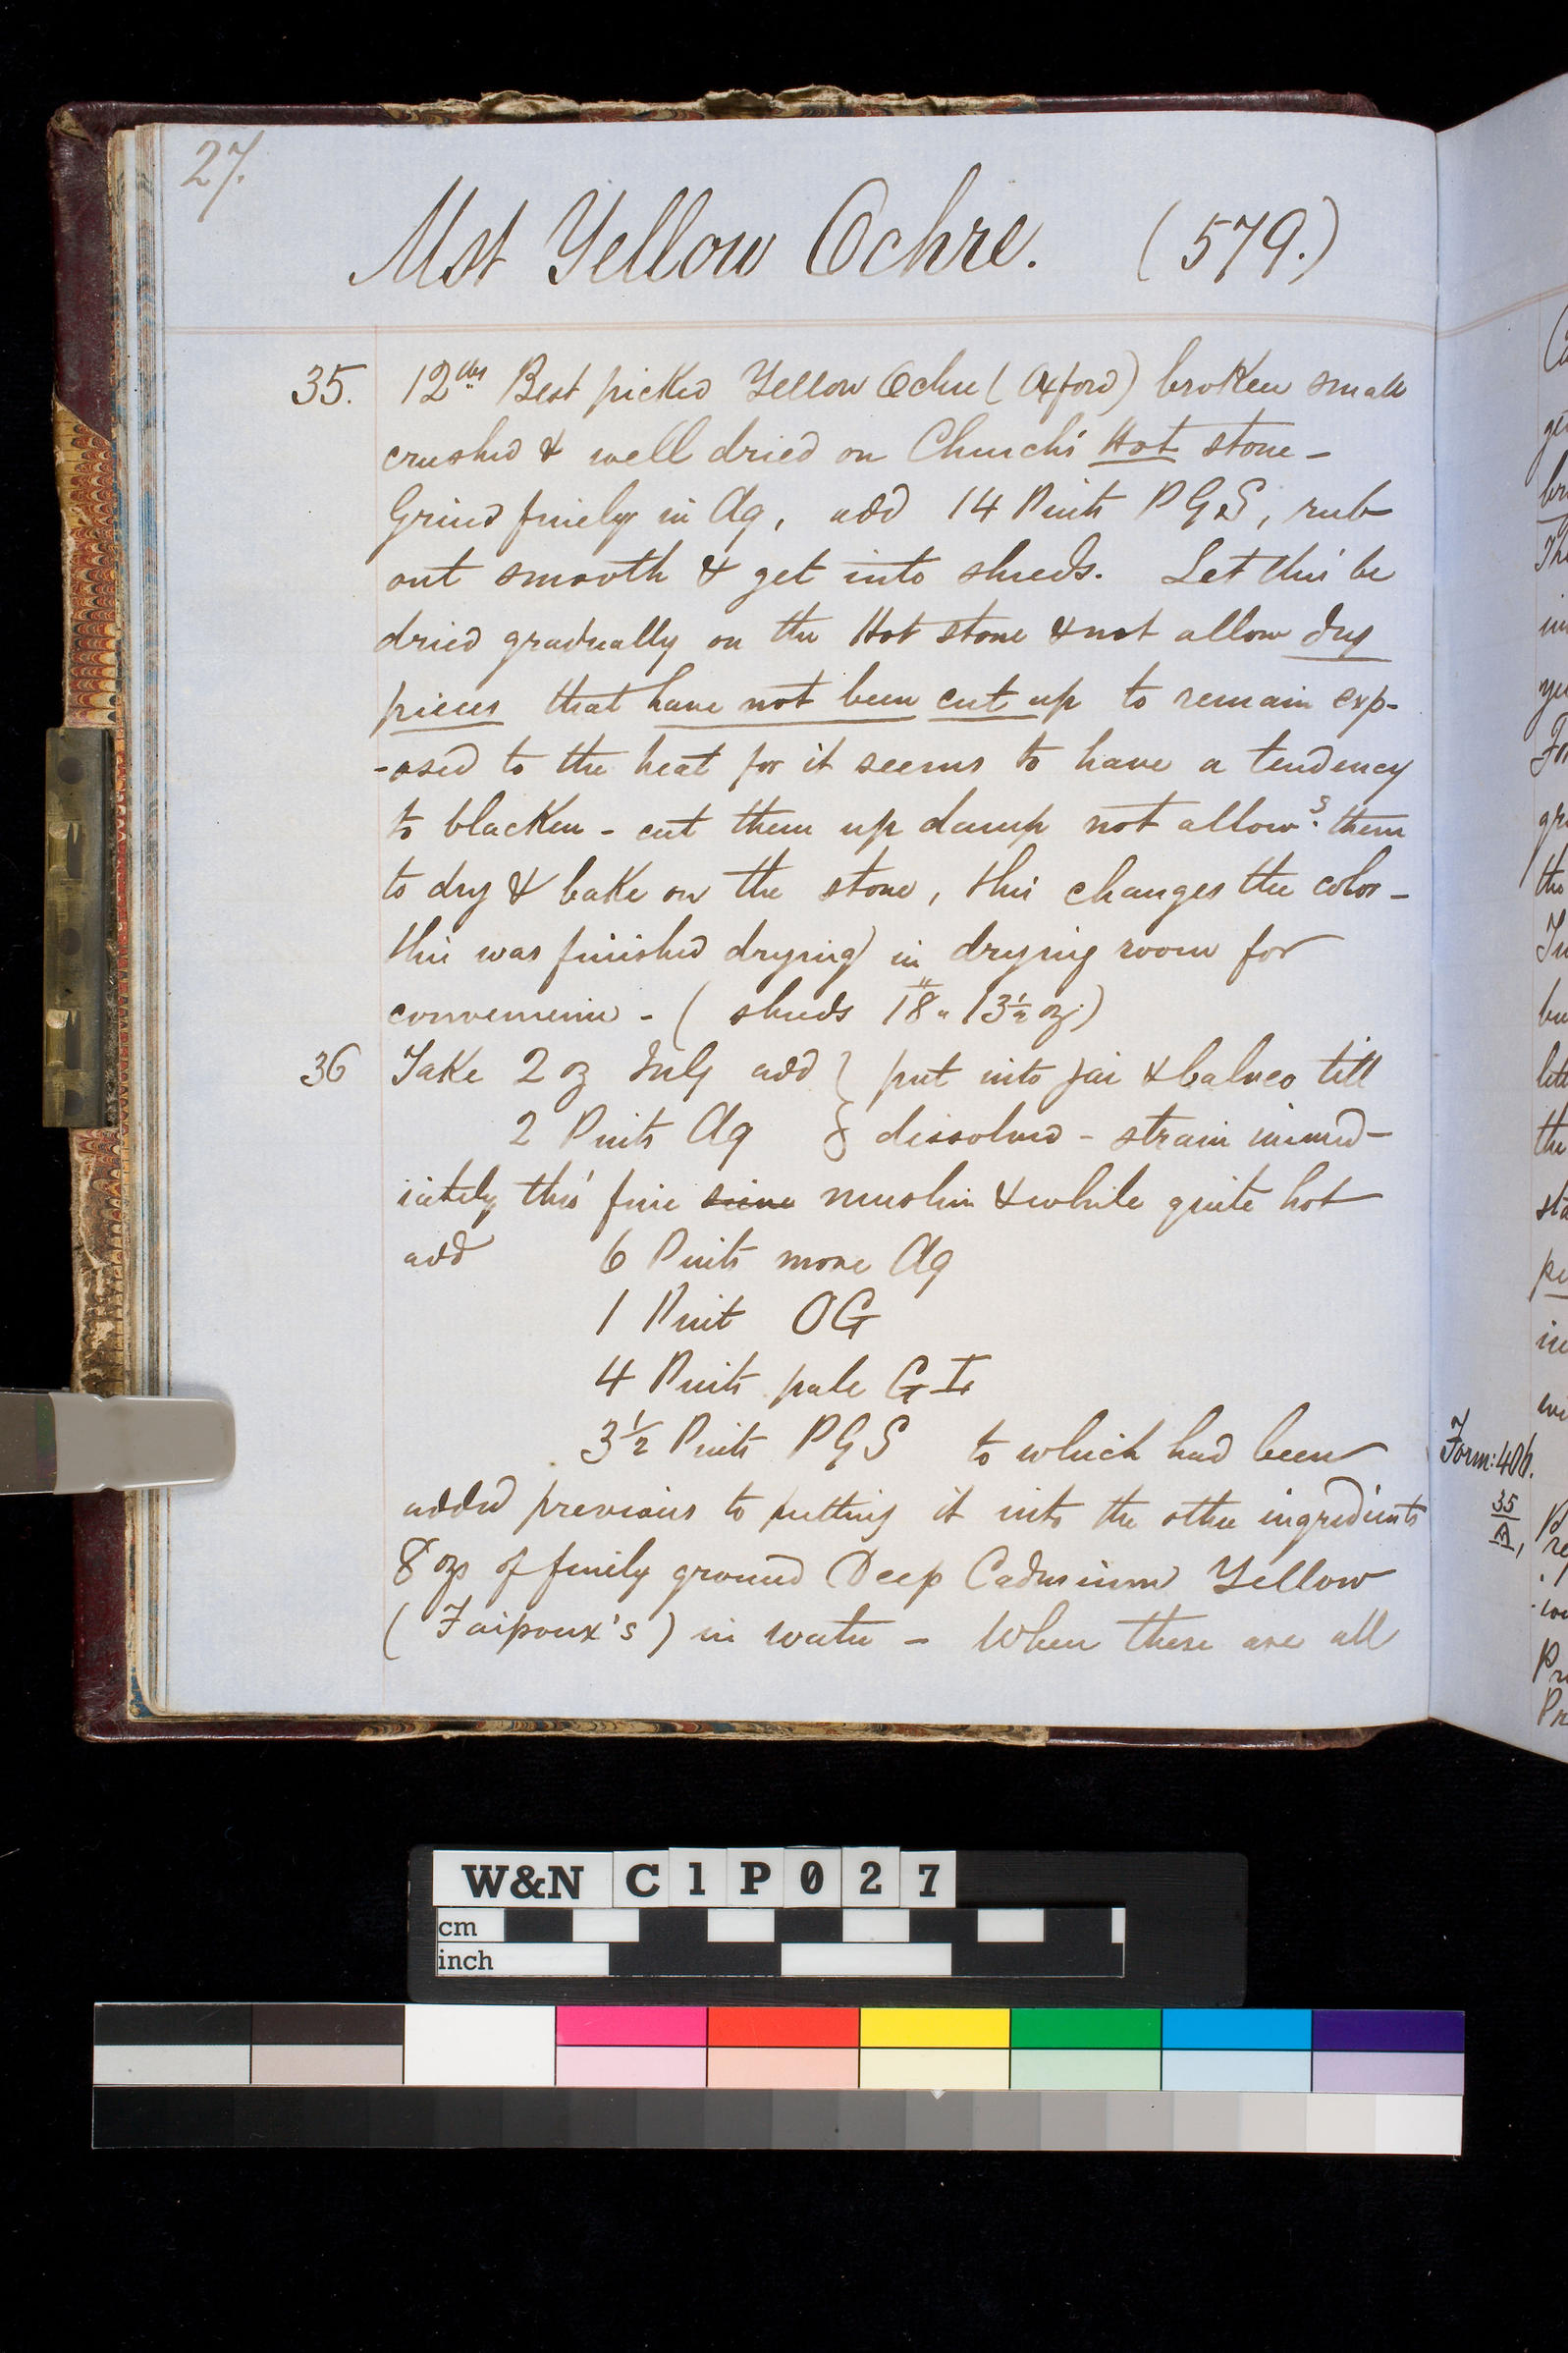 27.
Mst Yellow Ochre. (579.)
35. 12 lbs Best picked Yellow Ochre (Oxford) broken small
crushed & well dried on Church's Hot stone –
Grind finely in Aq, add 14 Pints PGS, rub
out smooth & get into shreds. Let this be
dried gradually on the Hot stone & not allow dry
pieces that have not been cut up to remain exp-
-osed to the heat for it seems to have a tendency
to blacken – cut them up damp not allowg. them
to dry & bake on the stone, this changes the color –
this was finished drying in drying room for
convenience – (shreds 18 " 13½ oz.)
36 Take 2 oz add } put into jar & balneo till
2 Pints Aq } dissolved – strain immed-
iately thro' fine sieve muslin & while quite hot
add 6 Pints more Aq
1 Pint OG
4 Pints pale G Tr
3½ Pints PGS to which had been
added previous to putting it into the other ingredients
8 ozs of finely ground Deep Cadmium Yellow
(Faipoux's) in water – When these are all
Form: 406.
35
W&N C1P027
cm
inch